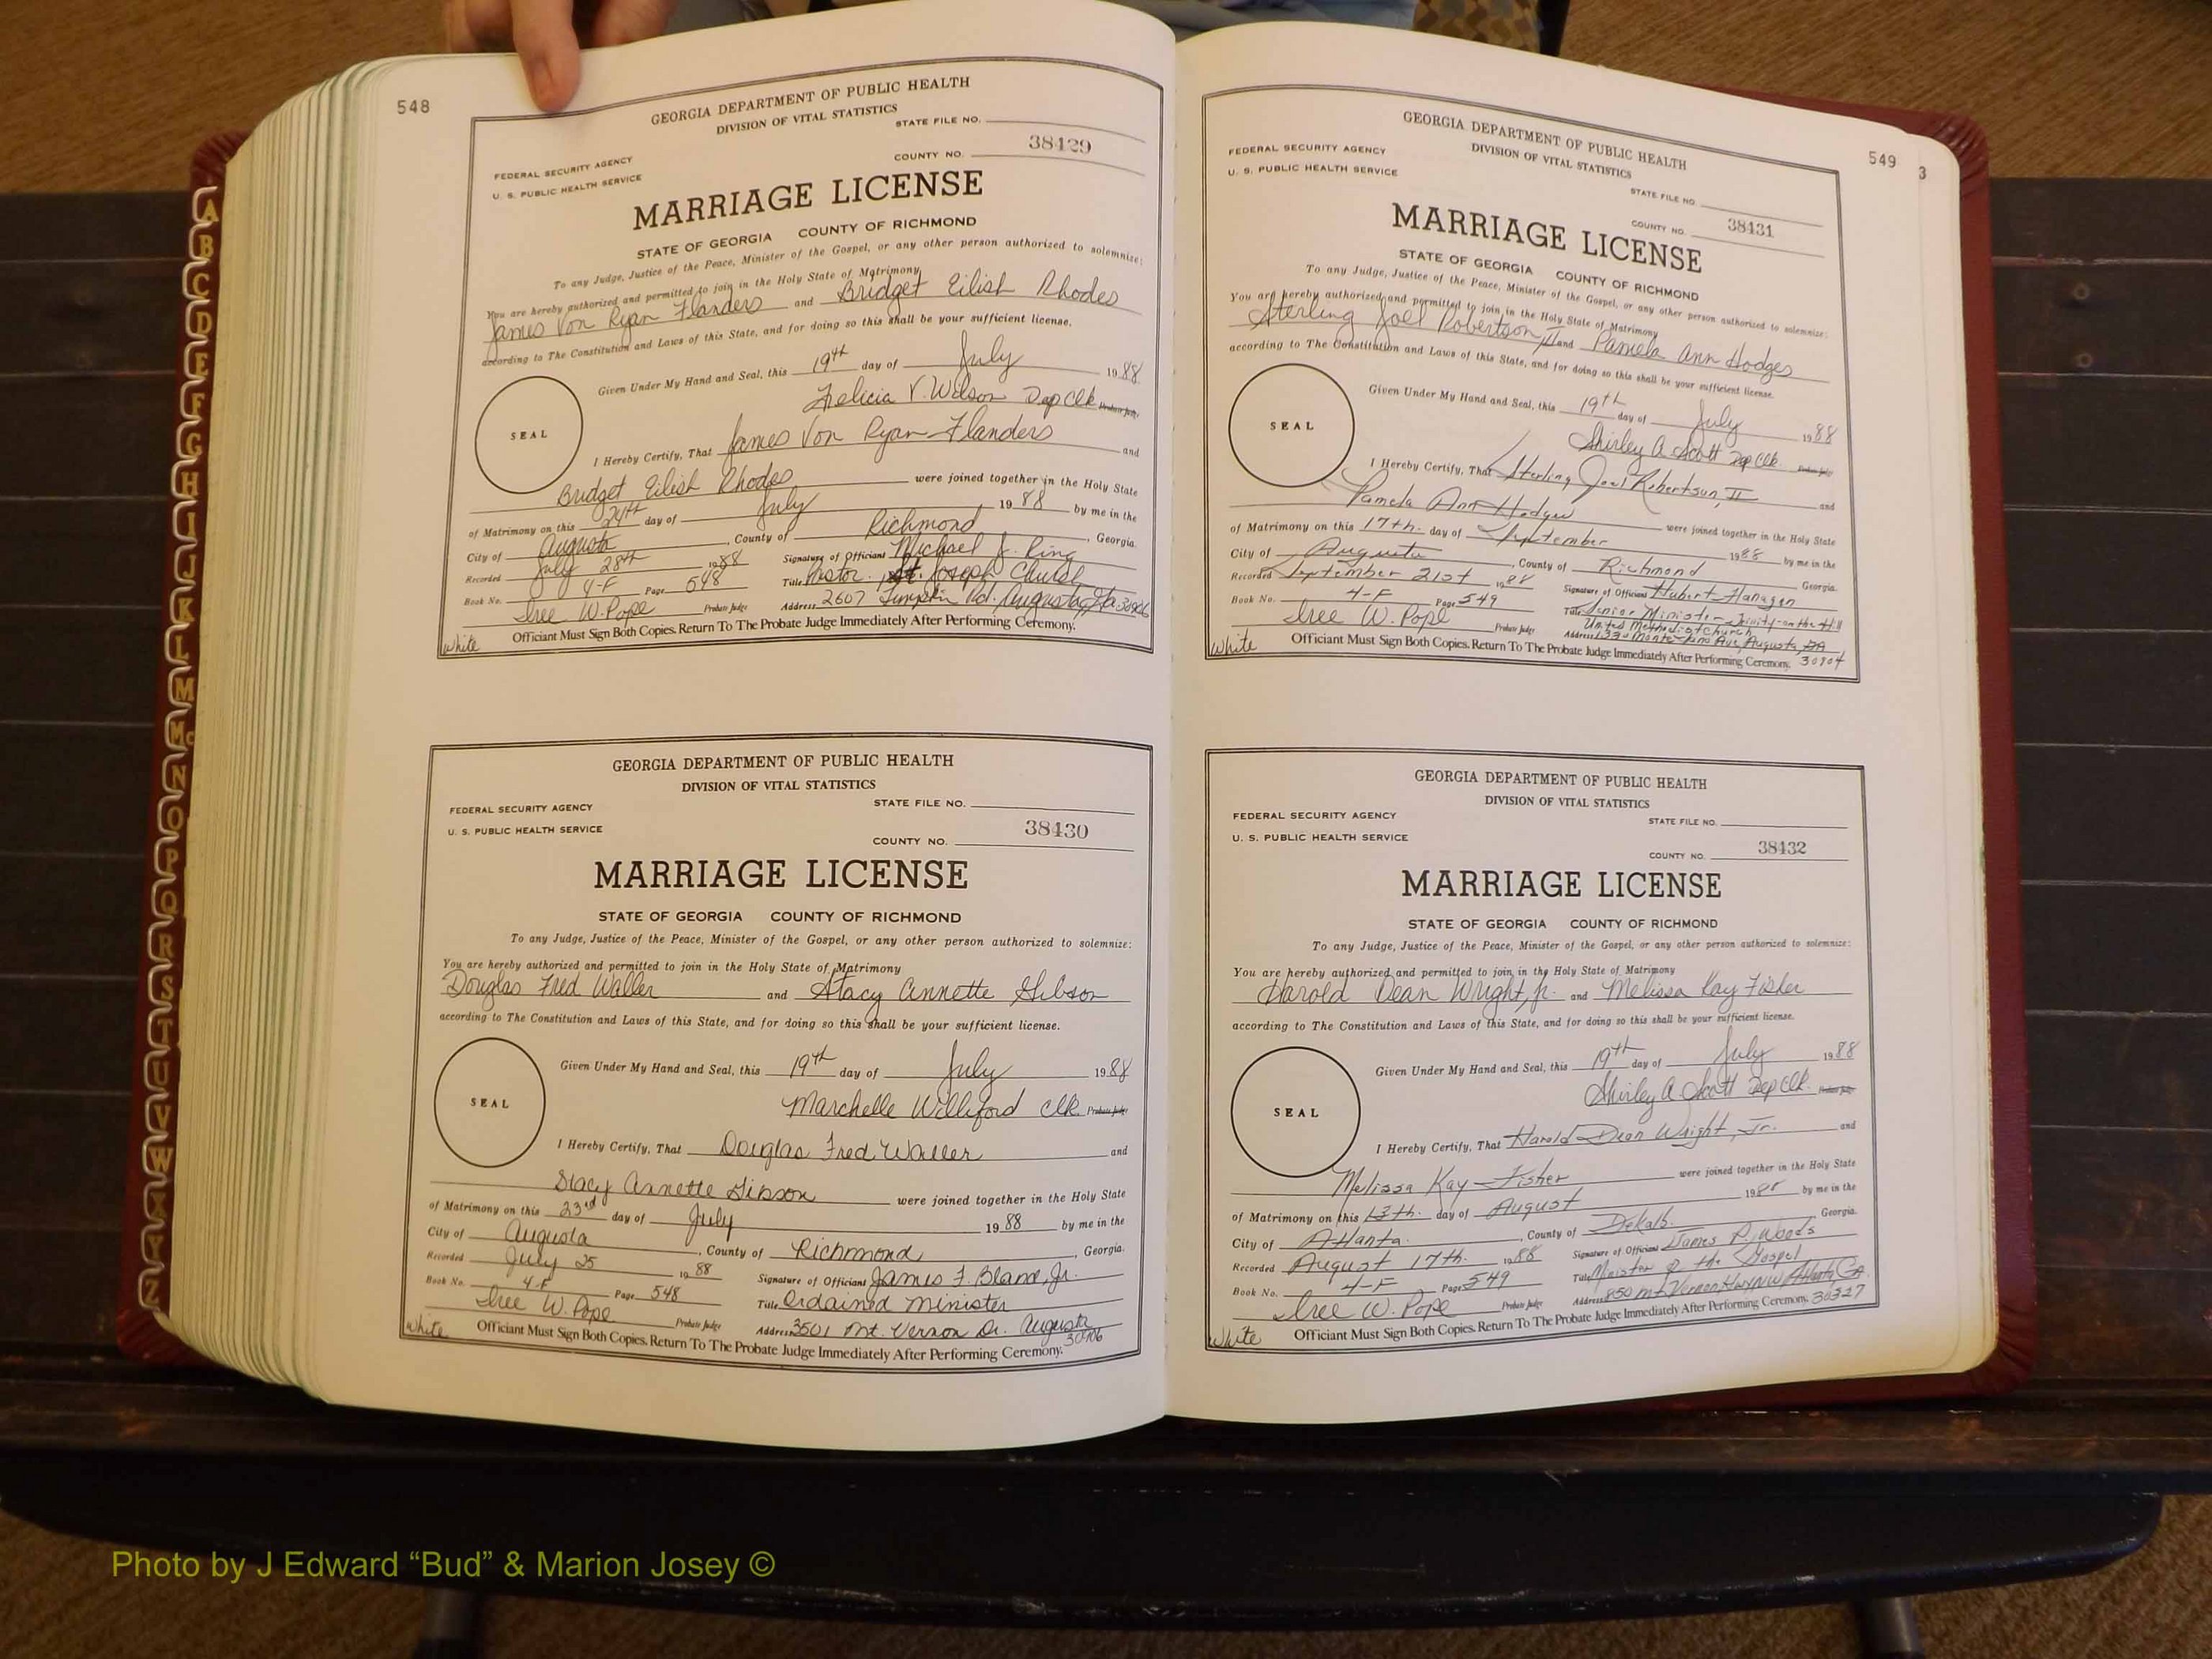 548
GEORGIA DEPARTMENT OF PUBLIC HEALTH
DIVISION OF VITAL STATISTICS
STATE FILE NO.
FEDERAL SECURITY AGENCY
COUNTY NO. 38429
U. S. PUBLIC HEALTH SERVICE
MARRIAGE LICENSE
STATE OF GEORGIA COUNTY OF RICHMOND
To any Judge, Justice of the Peace, Minister of the Gospel, or any other person authorized to solemnize:
You are hereby authorized and permitted to join in the Holy State of Matrimony
James Von Ryan Flanders and Bridget Eilish Rhodes
according to The Constitution and Laws of this State, and for doing so this shall be your sufficient license.
Given Under My Hand and Seal, this 19th day of July 1988
Felicia V. Wilson Dep Clk Probate Judge
SEAL
I Hereby Certify, That James Von Ryan Flanders and
Bridget Eilish Rhodes were joined together in the Holy State
of Matrimony on this 24th day of July 1988 by me in the
City of Augusta, County of Richmond, Georgia.
Recorded July 28th 1988 Signature of Officiant Michael J. Ring
Book No. 4-F Page 548 Title Pastor, St. Joseph Church
Iree W. Pope Probate Judge Address 2607 Lumpkin Rd. Augusta, Ga. 30906
White Officiant Must Sign Both Copies. Return To The Probate Judge Immediately After Performing Ceremony.
GEORGIA DEPARTMENT OF PUBLIC HEALTH
DIVISION OF VITAL STATISTICS
FEDERAL SECURITY AGENCY STATE FILE NO.
U. S. PUBLIC HEALTH SERVICE
COUNTY NO. 38430
MARRIAGE LICENSE
STATE OF GEORGIA COUNTY OF RICHMOND
To any Judge, Justice of the Peace, Minister of the Gospel, or any other person authorized to solemnize:
You are hereby authorized and permitted to join in the Holy State of Matrimony
Douglas Fred Waller and Stacy Annette Gibson
according to The Constitution and Laws of this State, and for doing so this shall be your sufficient license.
Given Under My Hand and Seal, this 19th day of July 1988
Marchelle Williford Clk Probate Judge
SEAL
I Hereby Certify, That Douglas Fred Waller and
Stacy Annette Gibson were joined together in the Holy State
of Matrimony on this 23rd day of July 1988 by me in the
City of Augusta, County of Richmond, Georgia.
Recorded July 25 1988 Signature of Officiant James F. Bland, Jr.
Book No. 4-F Page 548 Title Ordained Minister
Iree W. Pope Probate Judge Address 3501 Mt. Vernon Dr. Augusta 30906
White Officiant Must Sign Both Copies. Return To The Probate Judge Immediately After Performing Ceremony.
549
3
GEORGIA DEPARTMENT OF PUBLIC HEALTH
DIVISION OF VITAL STATISTICS
FEDERAL SECURITY AGENCY
U. S. PUBLIC HEALTH SERVICE
STATE FILE NO.
COUNTY NO. 38431
MARRIAGE LICENSE
STATE OF GEORGIA COUNTY OF RICHMOND
To any Judge, Justice of the Peace, Minister of the Gospel, or any other person authorized to solemnize:
You are hereby authorized and permitted to join in the Holy State of Matrimony
Sterling Joel Robertson, II and Pamela Ann Hodges
according to The Constitution and Laws of this State, and for doing so this shall be your sufficient license.
Given Under My Hand and Seal, this 19th day of July 1988
Shirley A Scott Dep Clk Probate Judge
SEAL
I Hereby Certify, That Sterling Joel Robertson, II and
Pamela Ann Hodges were joined together in the Holy State
of Matrimony on this 17th. day of September 1988 by me in the
City of Augusta, County of Richmond Georgia.
Recorded September 21st 1988 Signature of Officiant Hubert Flanagan
Book No. 4-F Page 549 Title Senior Minister-Trinity-on-the-Hill
United Methodist Church
Iree W. Pope Probate Judge Address 1330 Monte Sano Ave, Augusta, GA
White Officiant Must Sign Both Copies. Return To The Probate Judge Immediately After Performing Ceremony. 30904
GEORGIA DEPARTMENT OF PUBLIC HEALTH
DIVISION OF VITAL STATISTICS
FEDERAL SECURITY AGENCY STATE FILE NO.
U. S. PUBLIC HEALTH SERVICE
COUNTY NO. 38432
MARRIAGE LICENSE
STATE OF GEORGIA COUNTY OF RICHMOND
To any Judge, Justice of the Peace, Minister of the Gospel, or any other person authorized to solemnize:
You are hereby authorized and permitted to join in the Holy State of Matrimony
Harold Dean Wright, Jr. and Melissa Kay Fisher
according to The Constitution and Laws of this State, and for doing so this shall be your sufficient license.
Given Under My Hand and Seal, this 19th day of July 1988
Shirley A. Scott Dep Clk. Probate Judge
SEAL
I Hereby Certify, That Harold Dean Wright, Jr. and
Melissa Kay Fisher were joined together in the Holy State
of Matrimony on this 13th. day of August 1988 by me in the
City of Atlanta, County of Dekalb. Georgia.
Recorded August 17th. 1988 Signature of Officiant James P. Woods
Book No. 4-F Page 549 Title Minister of the Gospel
Iree W. Pope Probate Judge Address 850 Mt. Vernon Hwy NW Atlanta, GA.
White Officiant Must Sign Both Copies. Return To The Probate Judge Immediately After Performing Ceremony. 30327
A
B
C
D
E
F
G
H
I
J
K
L
M
Mc
N
O
P
Q
R
S
T
U
V
W
X
Y
Z
Photo by J Edward “Bud” & Marion Josey ©